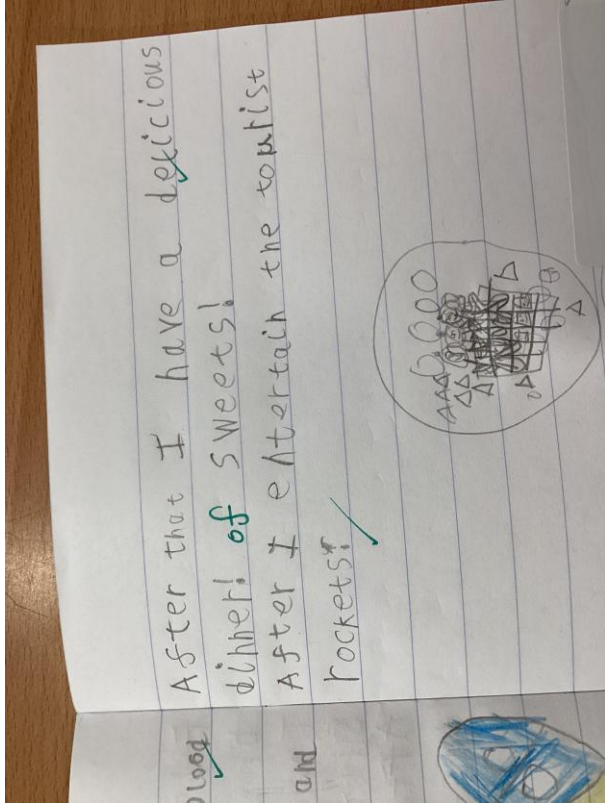 After that I have a delicious
dinner! of sweets!
After I entertain the tourist
rockets!
blood
and